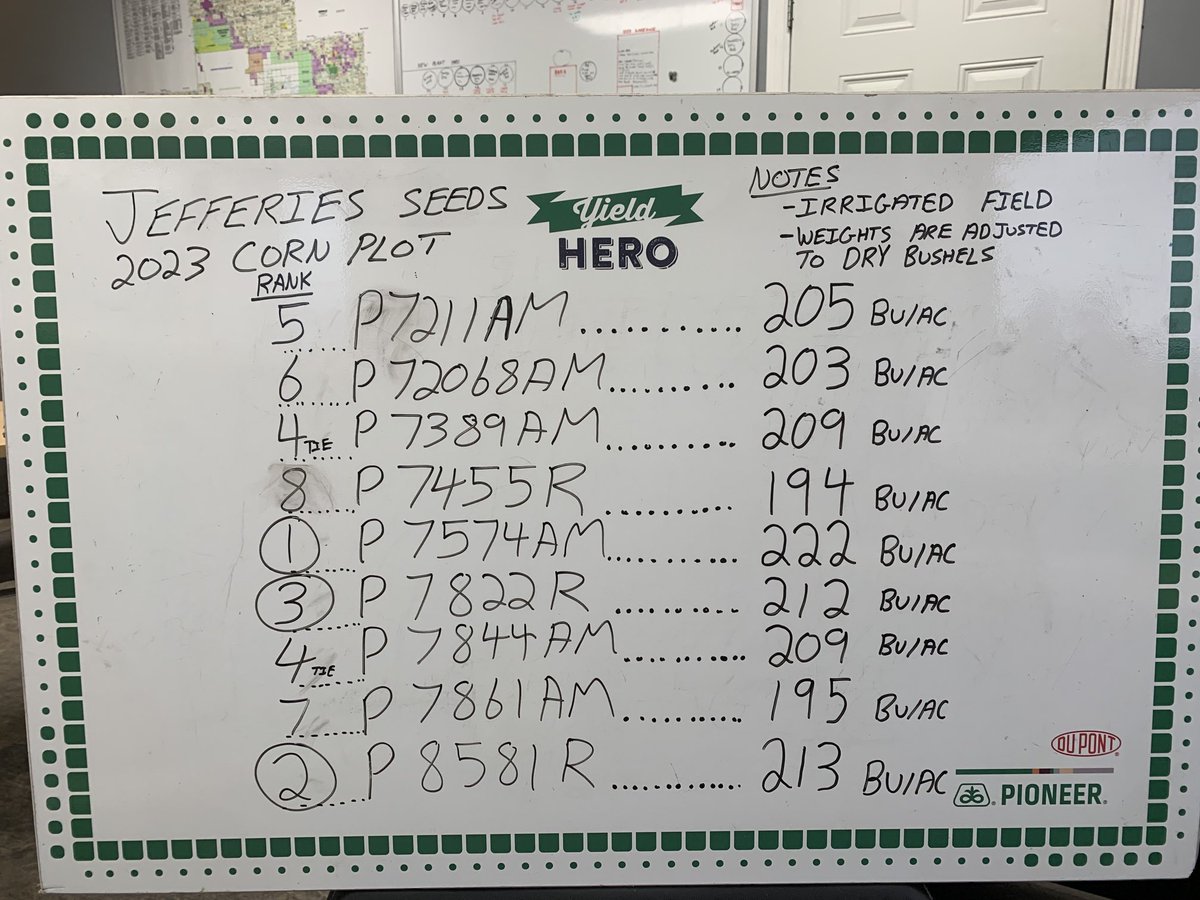 JEFFERIES SEEDS
2023 CORN PLOT
Yield
HERO
NOTES
-IRRIGATED FIELD
-WEIGHTS ARE ADJUSTED
TO DRY BUSHELS
RANK
5 P7211AM ........... 205 BU/AC
6 P72068AM .......... 203 BU/AC
4 TIE P 7389AM .......... 209 BU/AC
8 P 7455R .......... 194 BU/AC
1 P 7574AM .......... 222 BU/AC
3 P 7822R .......... 212 BU/AC
4 TIE P 7844AM .......... 209 BU/AC
7 P 7861AM .......... 195 BU/AC
2 P 8581R ........... 213 BU/AC
DUPONT
PIONEER